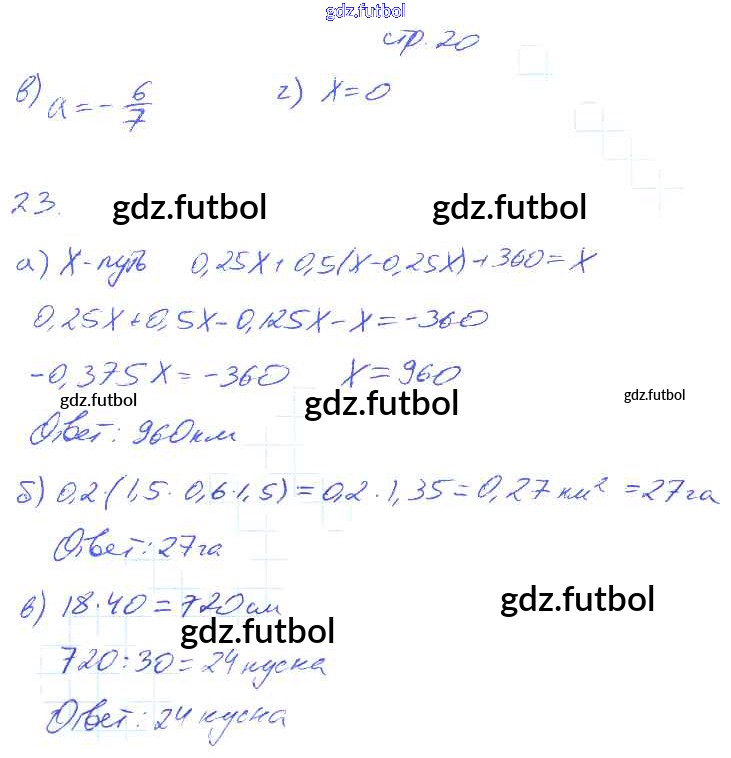 gdz.futbol
стр. 20
в) a = - 6/7 г) x = 0
23. gdz.futbol gdz.futbol
а) X - путь 0,25X + 0,5(X - 0,25X) + 360 = X
0,25X + 0,5X - 0,125X - X = -360
-0,375X = -360 X = 960
gdz.futbol gdz.futbol gdz.futbol
Ответ: 960 км
б) 0,2 · (1,5 · 0,6 · 1,5) = 0,2 · 1,35 = 0,27 км² = 27 га
Ответ: 27 га
в) 18 · 40 = 720 см gdz.futbol
gdz.futbol
720 : 30 = 24 куска
Ответ: 24 куска